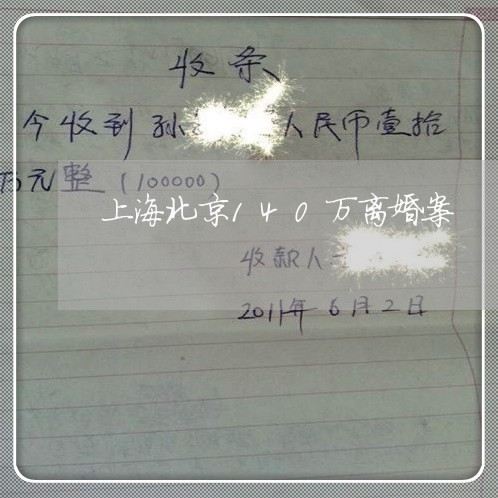 收条
今收到孙 人民币壹拾
万元整(100000)
上海北京140万离婚案
收款人
2011年6月2日